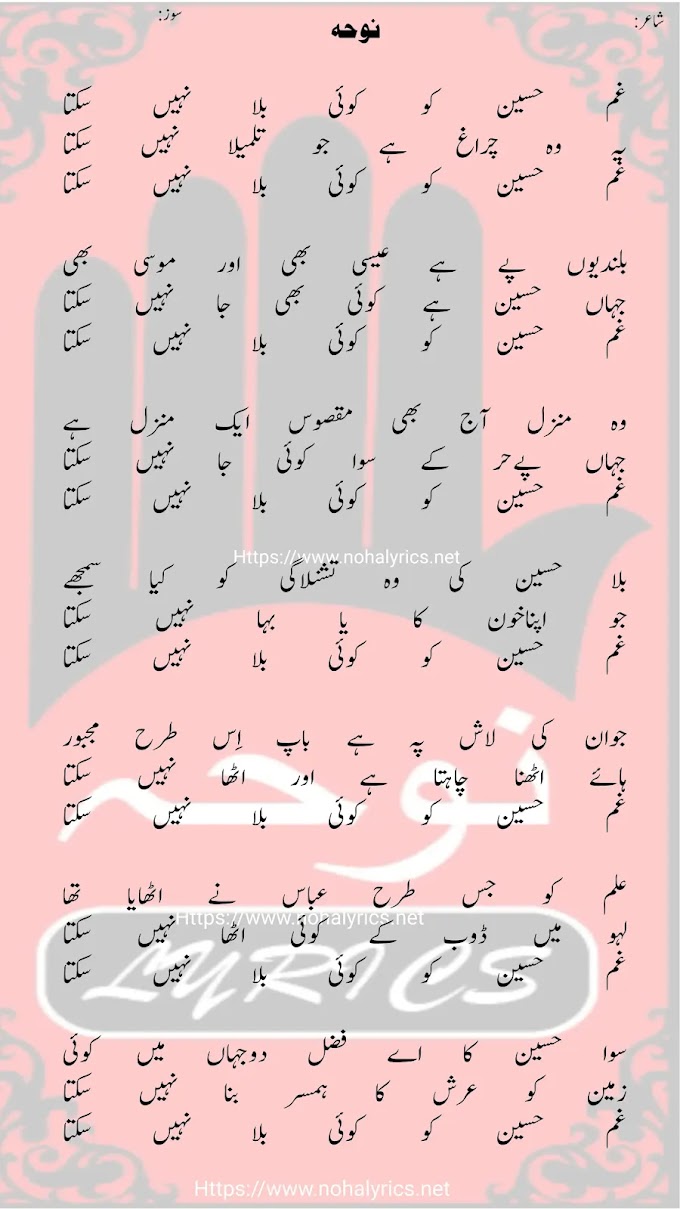 شاعر:
سوز:
نوحہ
غم حسین کو کوئی بلا نہیں سکتا
یہ وہ چراغ ہے جو تلمیلا نہیں سکتا
غم حسین کو کوئی بلا نہیں سکتا
بلندیوں پے ہے عیسی بھی اور موسی بھی
جہاں حسین ہے کوئی بھی جا نہیں سکتا
غم حسین کو کوئی بلا نہیں سکتا
وہ منزل آج بھی مقصوس ایک منزل ہے
جہاں پے حر کے سوا کوئی جا نہیں سکتا
غم حسین کو کوئی بلا نہیں سکتا
Https://www.nohalyrics.net
بلا حسین کی وہ تشنلاگی کو کیا سمجھے
جو اپناخون کا یا بہا نہیں سکتا
غم حسین کو کوئی بلا نہیں سکتا
جوان کی لاش پہ ہے باپ اِس طرح مجبور
ہائے اٹھنا چاہتا ہے اور اٹھا نہیں سکتا
غم حسین کو کوئی بلا نہیں سکتا
نوحہ
علم کو جس طرح عباس نے اٹھایا تھا
Https://www.nohalyrics.net
لہو میں ڈوب کے کوئی اٹھا نہیں سکتا
غم حسین کو کوئی بلا نہیں سکتا
LYRICS
سوا حسین کا اے فضل دوجہاں میں کوئی
زمین کو عرش کا ہمسر بنا نہیں سکتا
غم حسین کو کوئی بلا نہیں سکتا
Https://www.nohalyrics.net